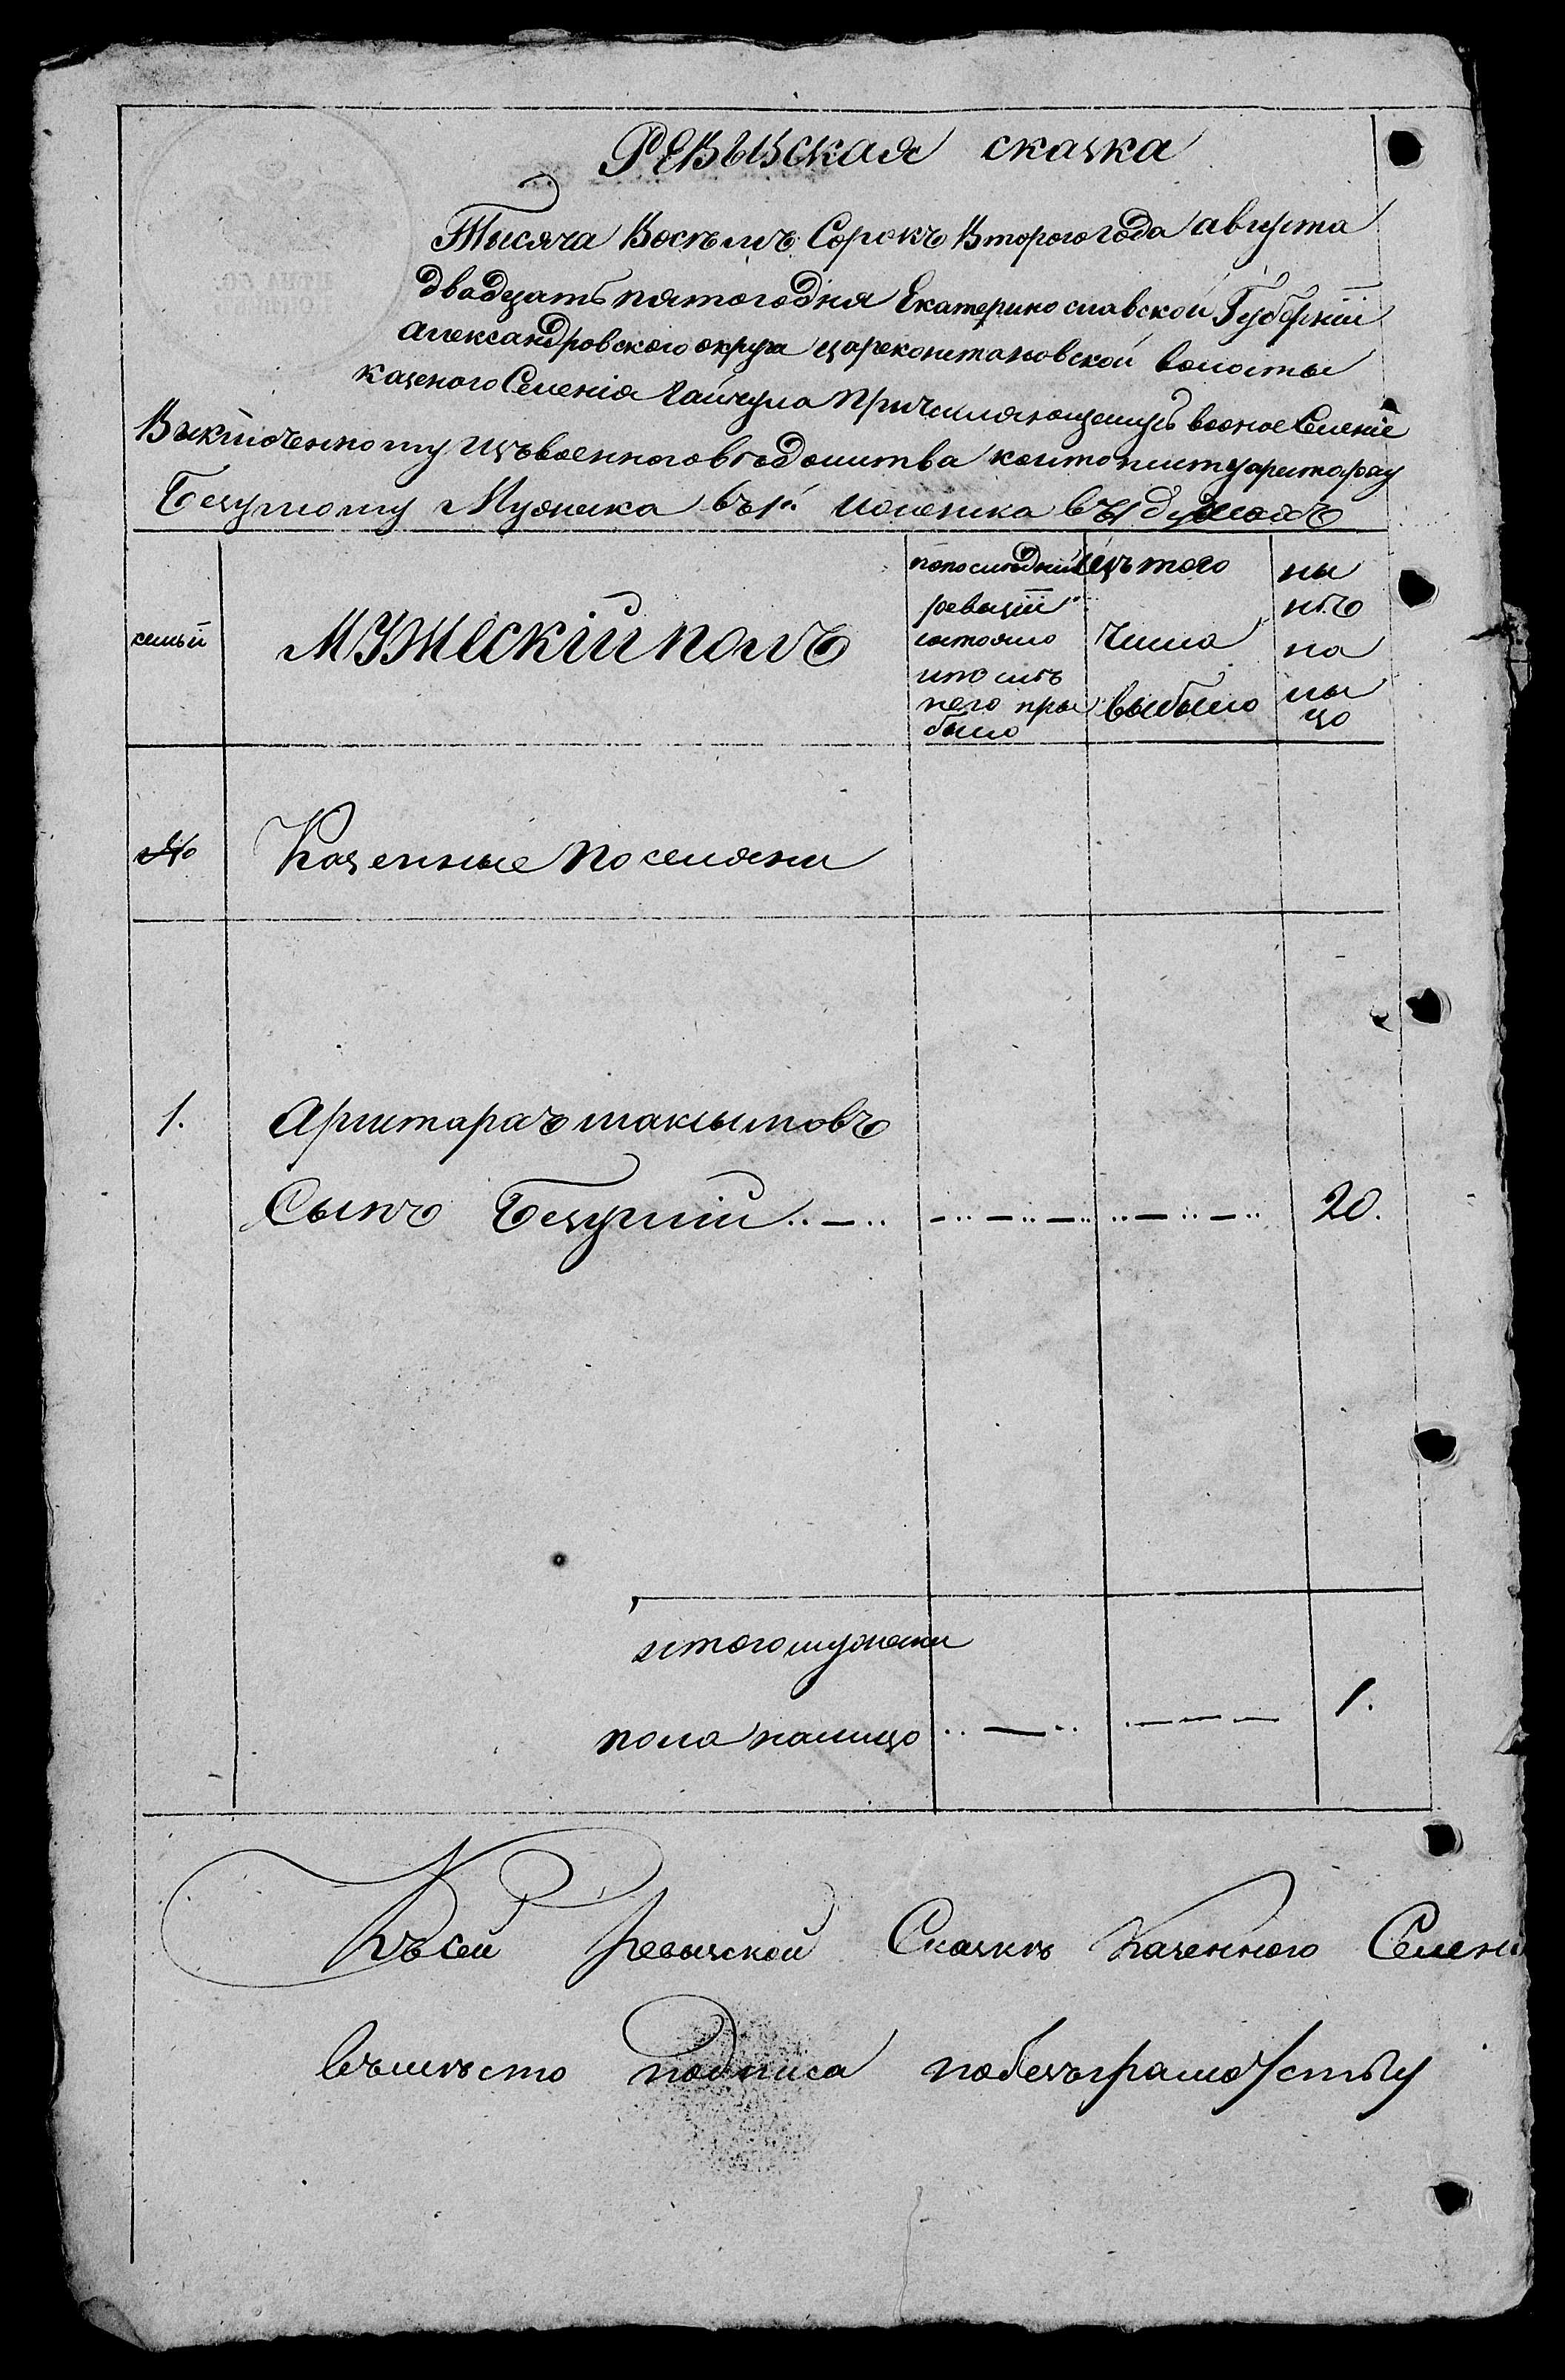 Ревызская сказка
Тисяча Восъмъ Сорокъ Второго года августа
двадцать пятого дня Екатеринославской Губерніи
александровского округа цареконстановской волосты
казеного Селенія Гайчула Причисляющемусь вооное Селеніе
Виключенному изъ военного вѣдомитва контонисту аристарху
Безумному Мужеска въ 1й.
семьи
МУЖЕСКІЙ ПОЛЪ
попоследней
ревызіи
состояло
ипослѣ
него при
было
изътого
числа
выбыло
ны
нѣ
на
лы
цо
№
Казенные Поселяни
1. Аристархъ максымовъ
Сынъ Безумній 20.
итого мужеска
пола налицо 1.
Къ сей Ревызской Сказкѣ Казенного Селени
въмѣсто подписа побезъграмотству